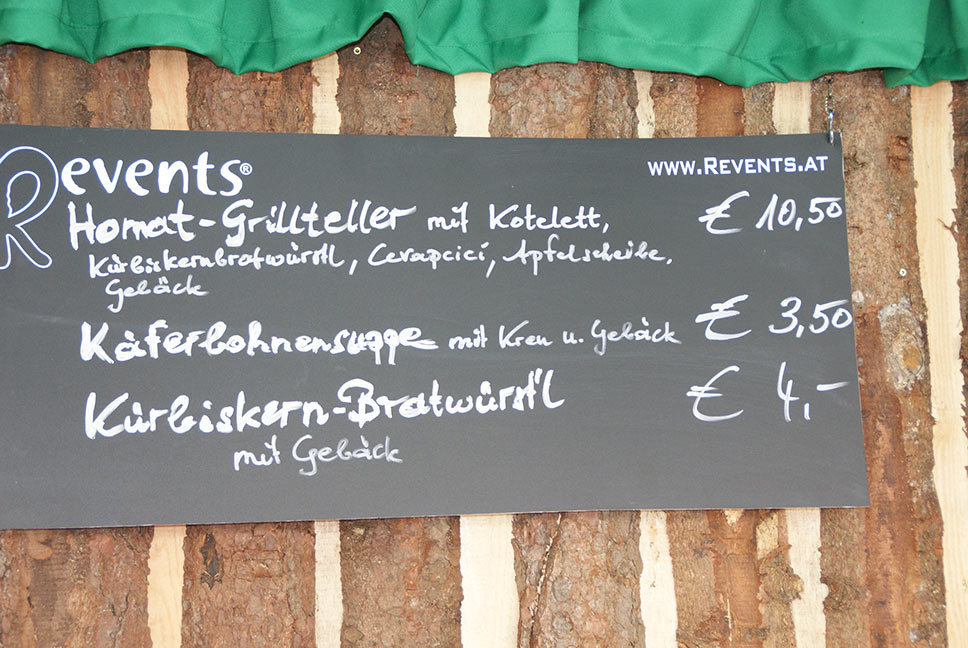 Revents®
www.Revents.at
Homat-Grillteller mit Kotelett, € 10,50
Kürbiskernbratwürstl, Cevapcici, Apfelscheibe,
Gebäck
Käferbohnensuppe mit Kren u. Gebäck € 3,50
Kürbiskern-Bratwürstl € 4,-
mit Gebäck